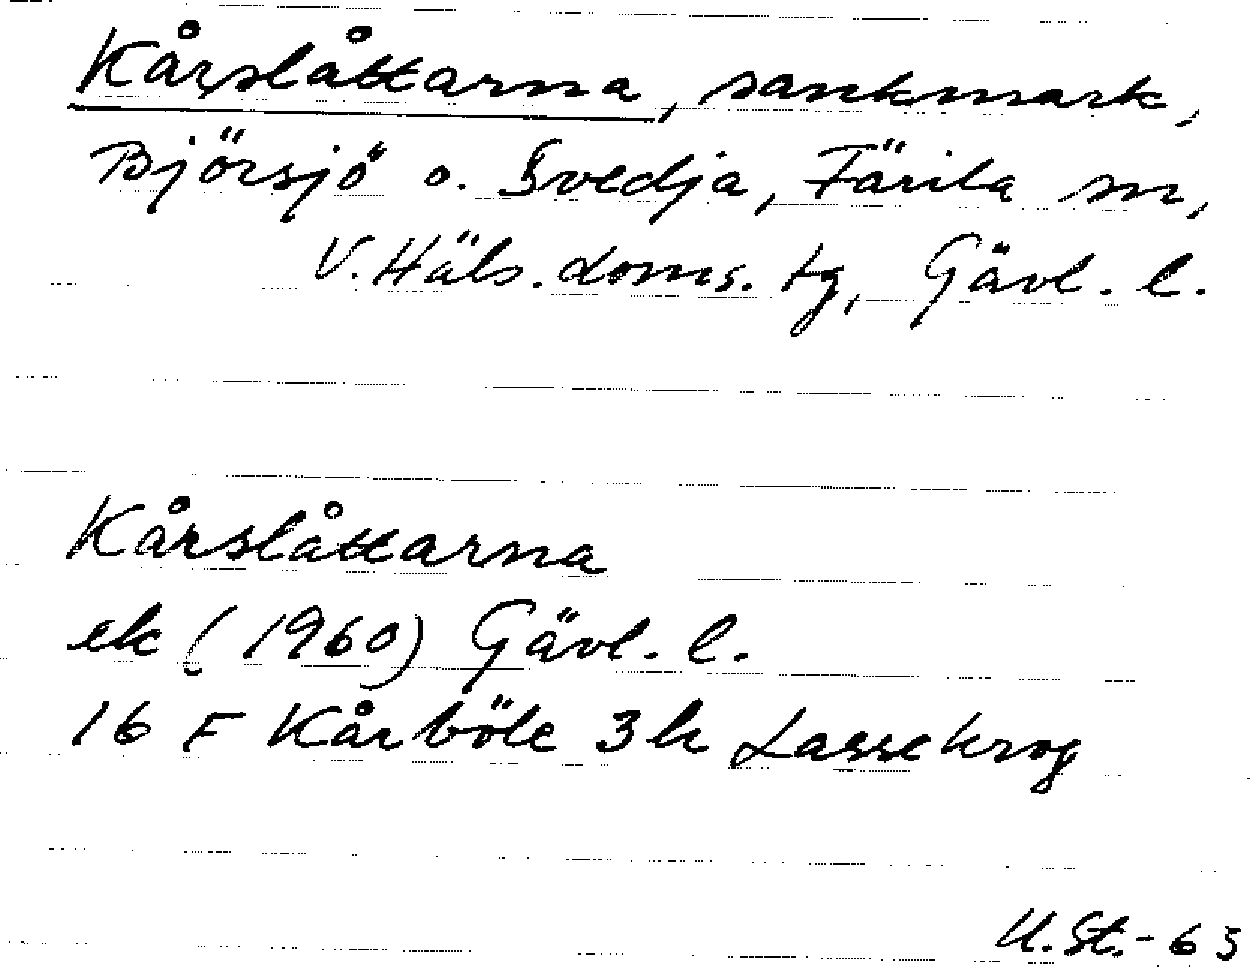 Kårslåttarna, sankmark,
Björsjö o. Svedja, Färila sn,
V. Häls. doms. tg, Gävl. l.
Kårslåttarna
ek (1960) Gävl. l.
16 F Kårböle 3h Lassekrog
U. St. - 63